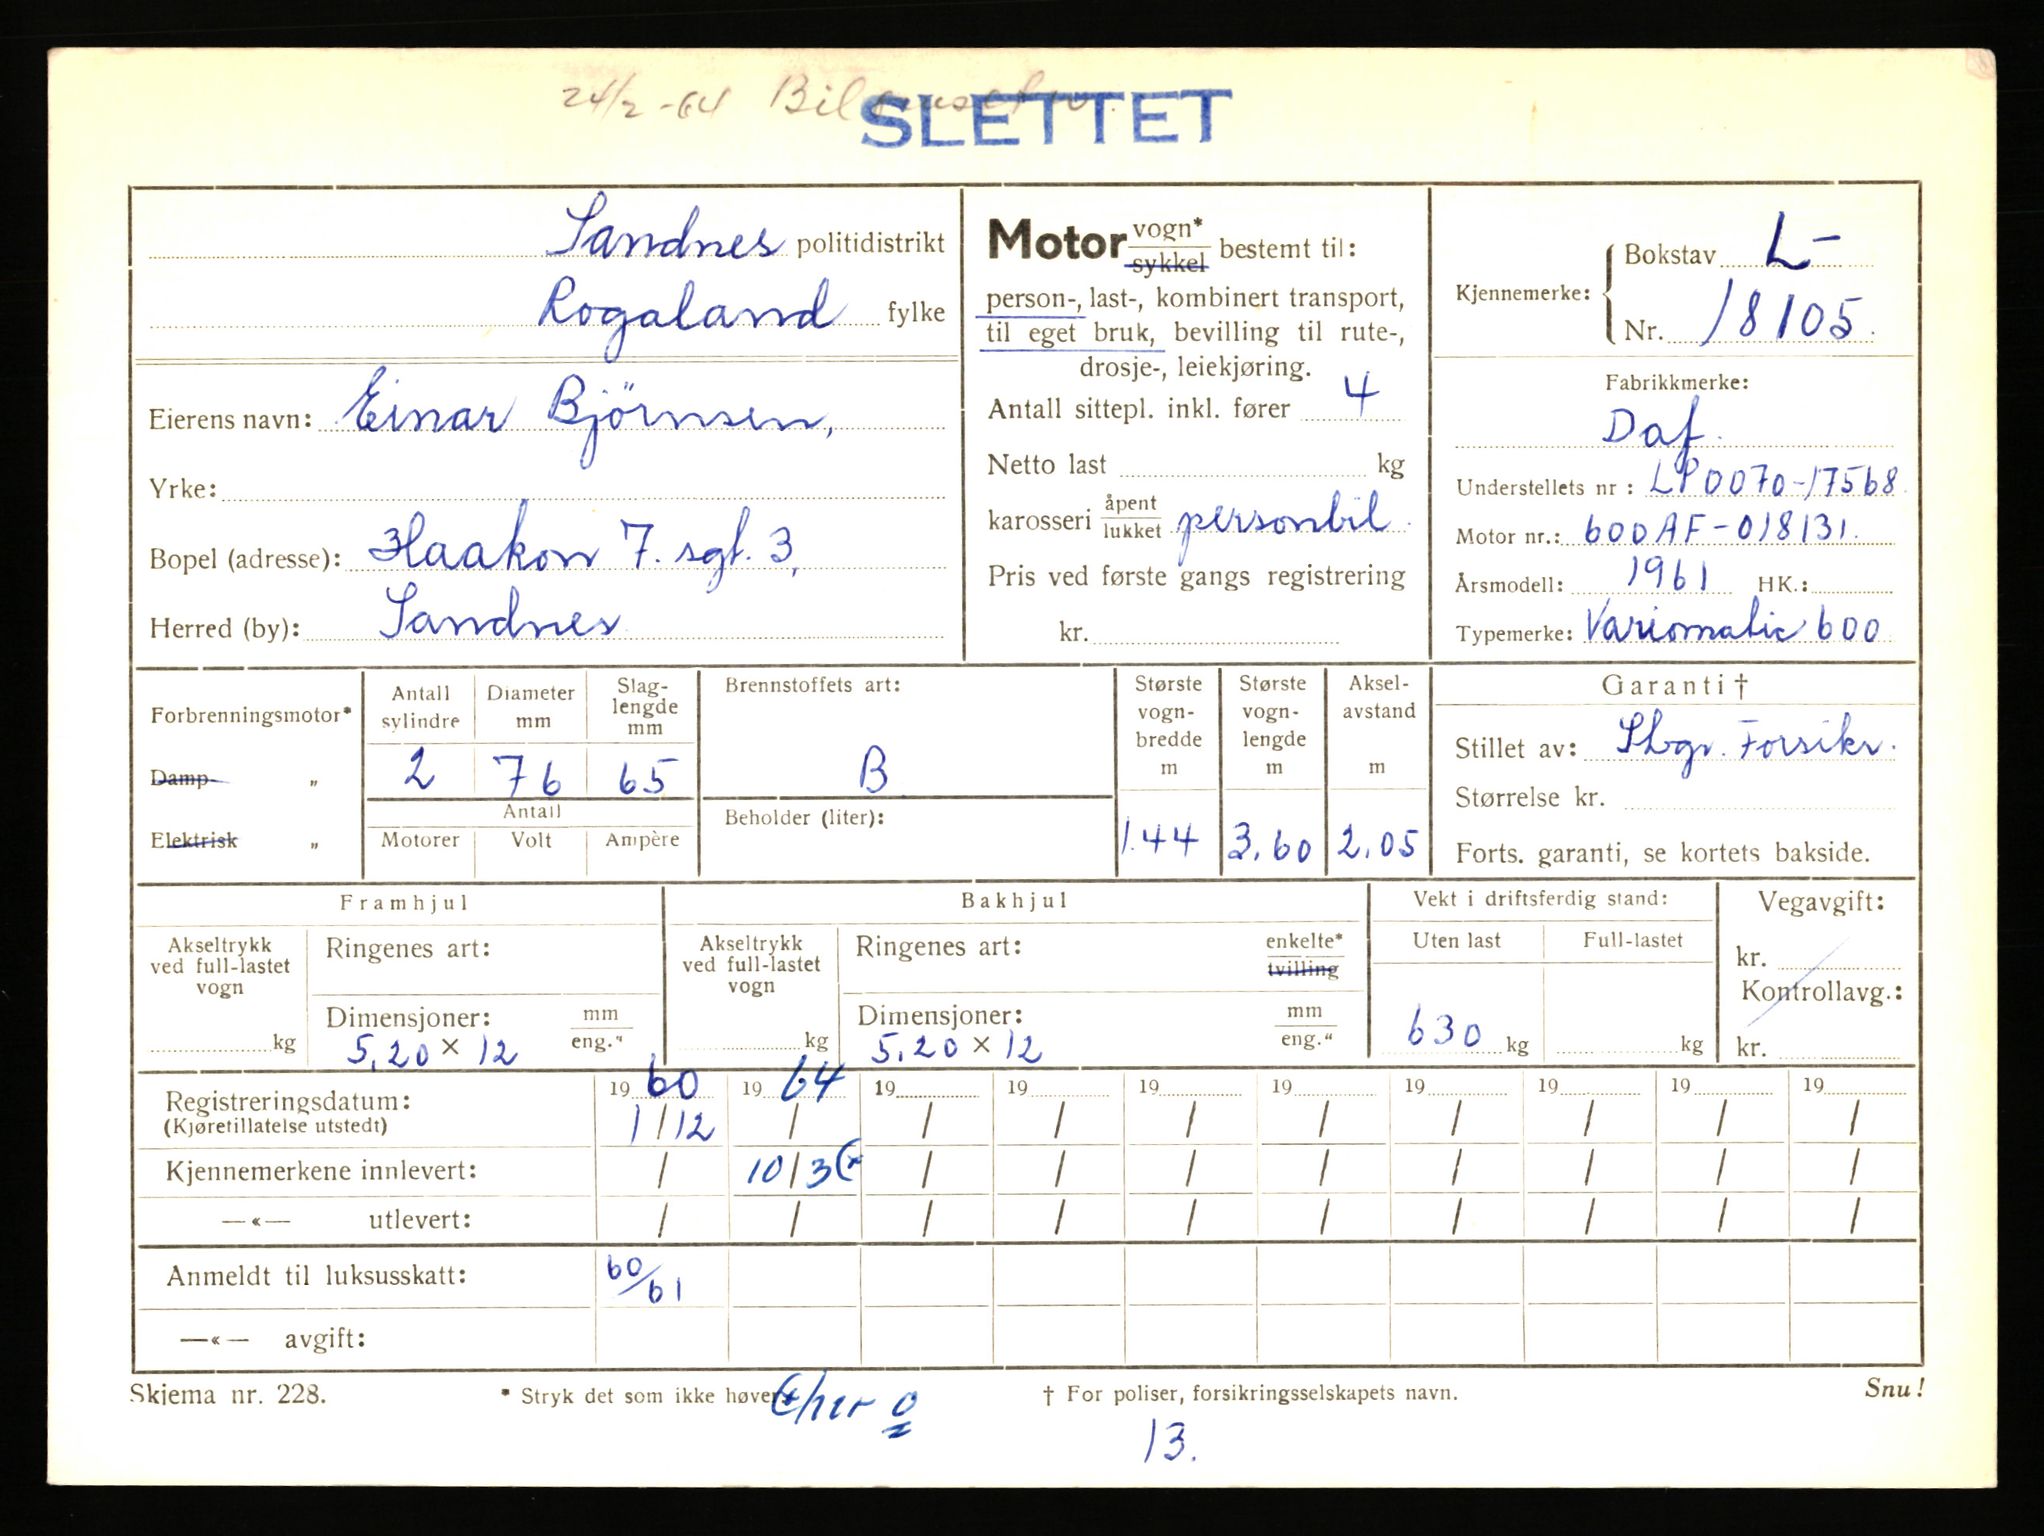 24/2-64
SLETTET
Sandnes politidistrikt
Rogaland fylke
Eierens navn: Einar Bjørnsen,
Yrke:
Bopel (adresse): Haakon 7. sgt. 3,
Herred (by): Sandnes
Motor vogn* sykkel bestemt til:
person-, last-, kombinert transport,
til eget bruk, bevilling til rute-,
drosje-, leiekjøring.
Antall sittepl. inkl. fører 4
Netto last kg
karosseri åpent lukket personbil
Pris ved første gangs registrering
kr.
Kjennemerke: Bokstav L-
Nr. 18105.
Fabrikkmerke:
Daf.
Understellets nr : LP0070-17568
Motor nr.: 600AF-018131.
Årsmodell: 1961 HK.:
Typemerke: Variomatic 600
Forbrenningsmotor*
Damp „
Elektrisk „
Antall sylindre
Diameter mm
Slag-
lengde
mm
2 76 65
Antall
Motorer Volt Ampère
Brennstoffets art:
B
Beholder (liter):
Største
vogn-
bredde
m
1.44
Største
vogn-
lengde
m
3,60
Aksel-
avstand
m
2,05
Garanti †
Stillet av: Sbgr. Forsikr.
Størrelse kr.
Forts. garanti, se kortets bakside.
Framhjul
Akseltrykk
ved full-lastet
vogn
kg
Ringenes art:
Dimensjoner: mm eng."
5,20 × 12
Bakhjul
Akseltrykk
ved full-lastet
vogn
kg
Ringenes art: enkelte* tvilling
Dimensjoner: mm eng."
5,20 × 12
Vekt i driftsferdig stand:
Uten last Full-lastet
630 kg kg
Vegavgift:
kr.
Kontrollavg.:
kr.
Registreringsdatum: 1960 1964 19 19 19 19 19 19 19 19
(Kjøretillatelse utstedt) 1/12 / / / / / / / / /
Kjennemerkene innlevert: / 10/3(* / / / / / / / /
—«— utlevert: / / / / / / / / / /
Anmeldt til luksusskatt: 60/61
—«— avgift:
Skjema nr. 228.
* Stryk det som ikke høver.
† For poliser, forsikringsselskapets navn.
Snu!
13.